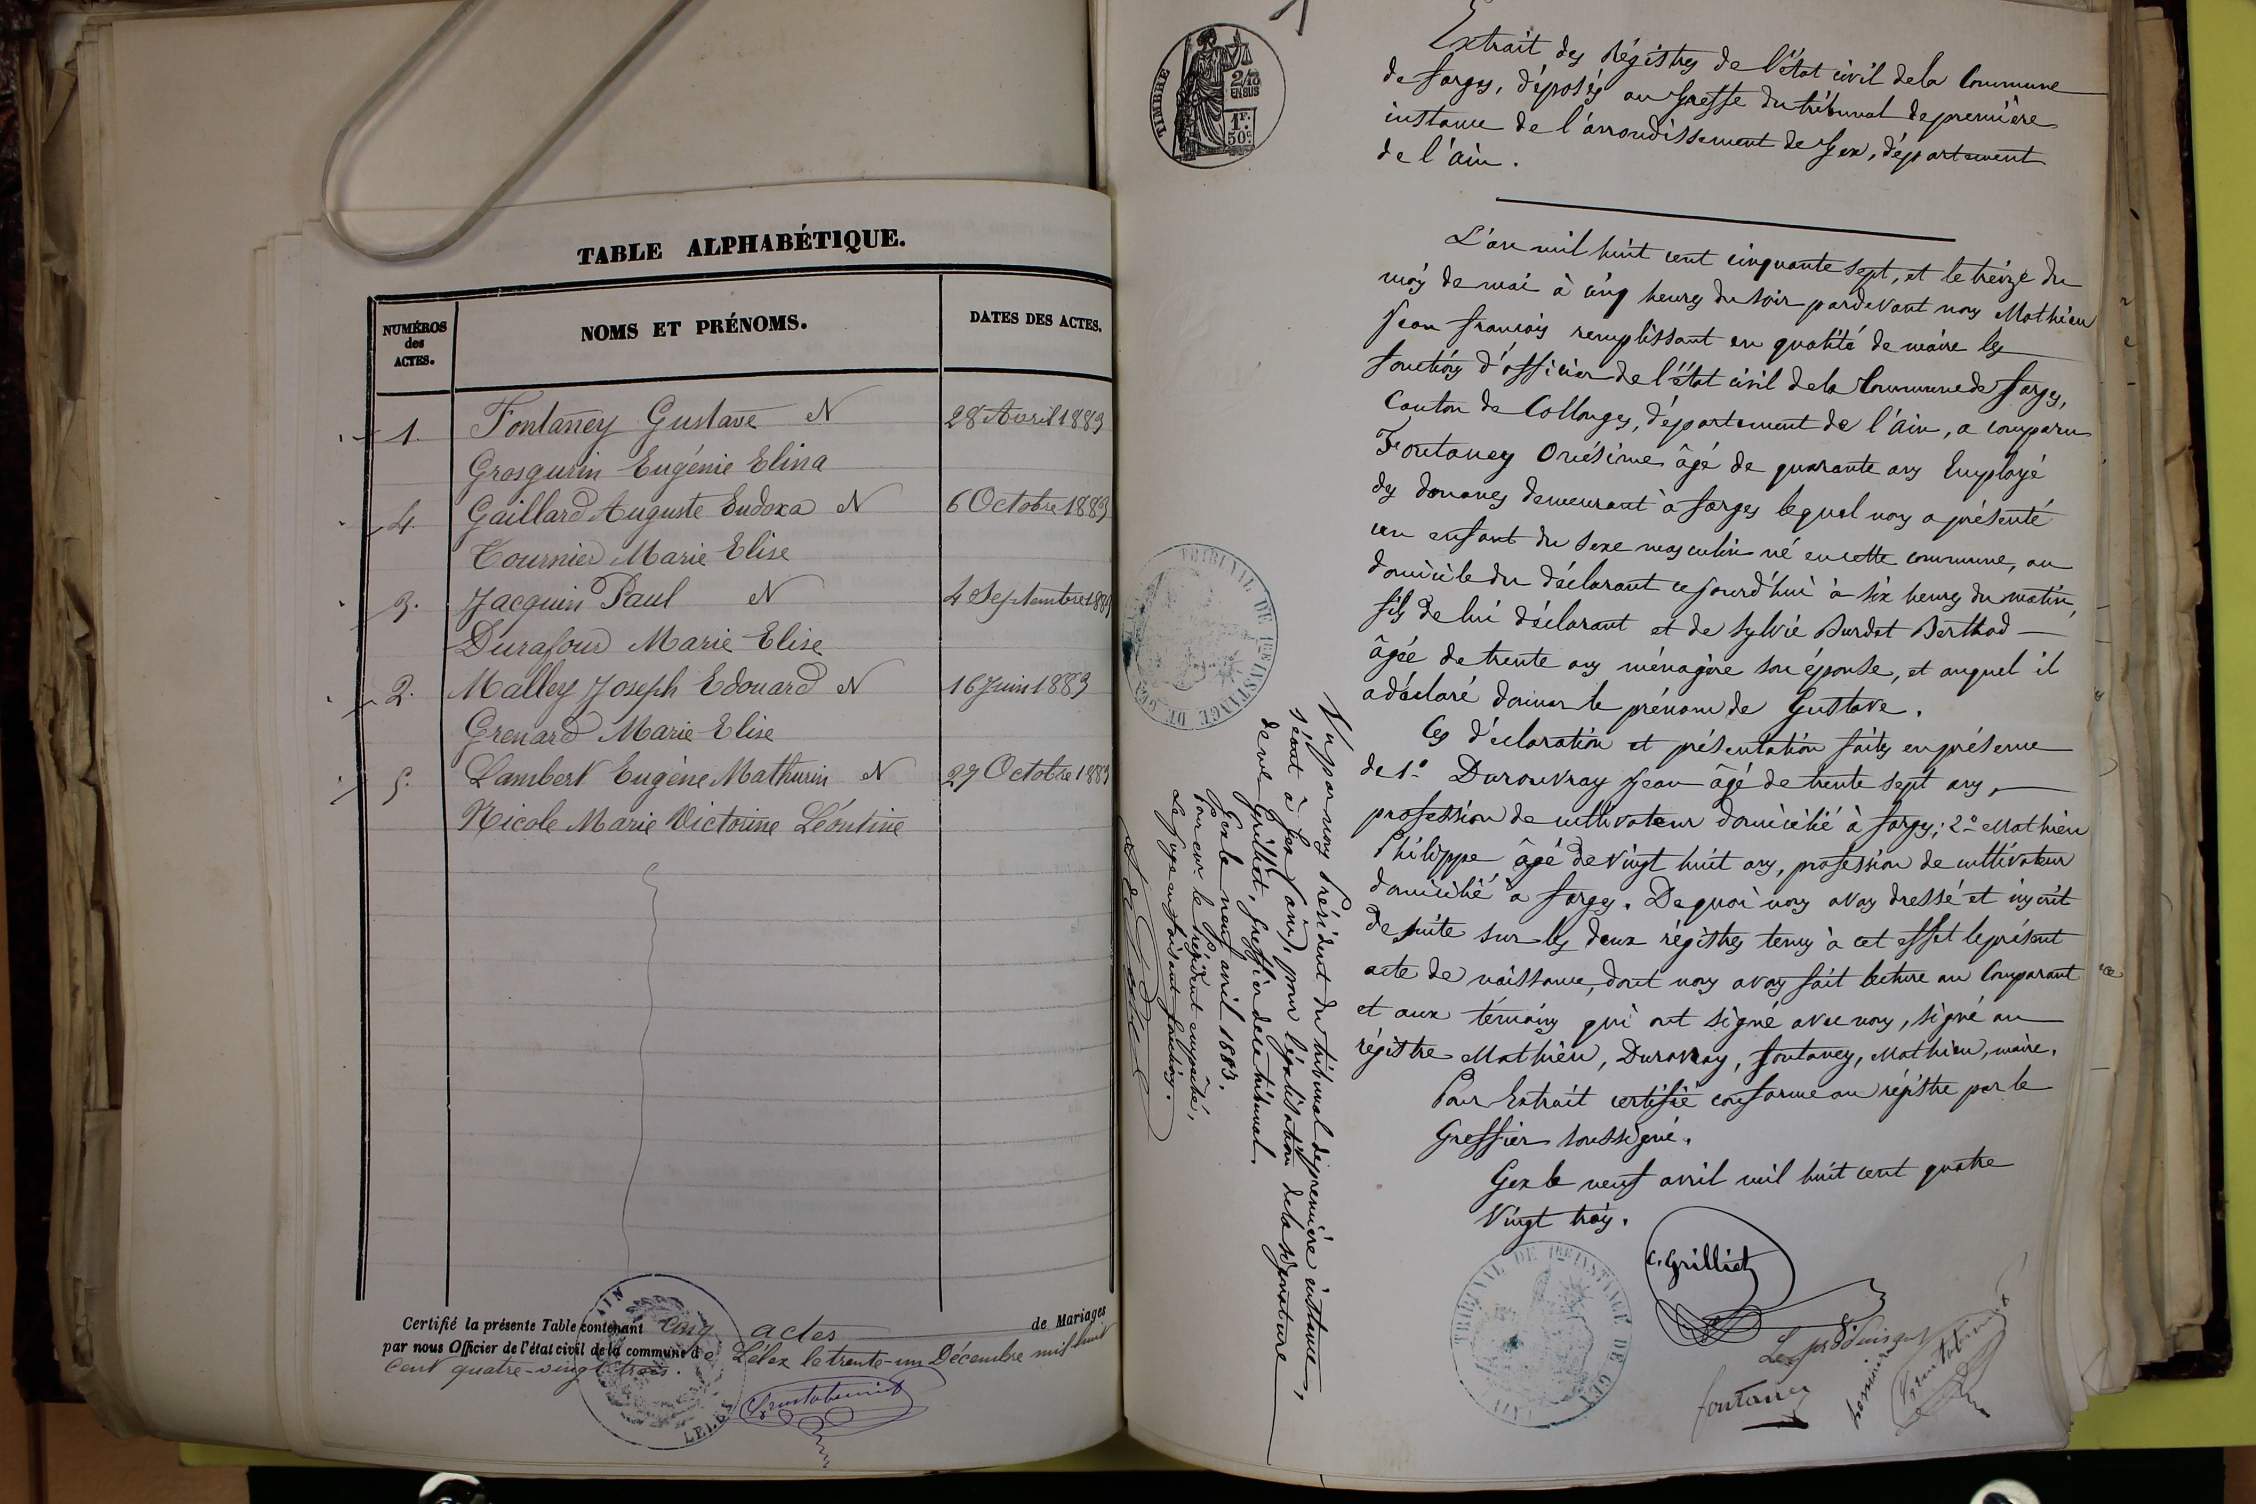 TABLE ALPHABÉTIQUE.
NUMÉROS
des
ACTES.
NOMS ET PRÉNOMS.
DATES DES ACTES.
1. Fontaney Gustave N 28 Avril 1883
Grosgurin Eugénie Elina
4. Gaillard Auguste Eudoxa N 6 Octobre 1883
Tournier Marie Elise
3. Jacquin Paul N 4 Septembre 1883
Durafour Marie Elise
2. Malley Joseph Edouard N 16 Juin 1883
Grenard Marie Elise
5. Lambert Eugène Mathurin N 27 Octobre 1883
Nicole Marie Victorine Léontine
Certifié la présente Table contenant cinq actes de Mariages
par nous Officier de l'état civil de la commune de Lélex le trente-un Décembre mil huit
cent quatre-vingt trois.
TIMBRE
2/10
EN SUS
1F.
50c.
Extrait des Régistres de l'état civil de la Commune
de farges, déposés au Greffe du tribunal de première
instance de l'arrondissement de Gex, département
de l'ain.
L'an mil huit cent cinquante sept, et le treize du
mois de mai à cinq heures du soir pardevant nous Mathieu
Jean françois remplissant en qualité de maire les
fonctions d'officier de l'état civil de la Commune de farges,
Canton de Collonges, département de l'ain, a comparu
Fontaney Onésime âgé de quarante ans Employé
des douanes demeurant à farges lequel nous a présenté
un enfant du sexe masculin né en cette commune, au
domicile du déclarant ce jourd'hui à six heures du matin,
fils de lui déclarant et de Sylvie Burdet Berthod
âgée de trente ans ménagère son épouse, et auquel il
a déclaré donner le prénom de Gustave.
Ces déclaration et présentation faites en présence
de 1º Durouvray Jean âgé de trente sept ans,
profession de cultivateur domicilié à farges; 2º Mathieu
Philippe âgé de vingt huit ans, profession de cultivateur
domicilié à farges. De quoi nous avons dressé et inscrit
de suite sur les deux régistres tenus à cet effet le présent
acte de naissance, dont nous avons fait lecture au Comparant
et aux témoins qui ont signé avec nous, signé au
régistre Mathieu, Durouvray, fontaney, Mathieu, maire.
Pour Extrait certifié conforme au régistre par le
Greffier soussigné.
Gex le neuf avril mil huit cent quatre
Vingt trois.
C. Grilliet
fontaney
TRIBUNAL DE 1ère INSTANCE DE GEX
Vu par nous Président du tribunal de première instance,
séant à Gex (ain), pour légalisation de la signature
de me Grilliet, greffier de ce tribunal.
Gex le neuf avril 1883.
Pour le Président empêché,
Le Juge en faisant fonctions.
TRIBUNAL DE 1ère INSTANCE DE GEX